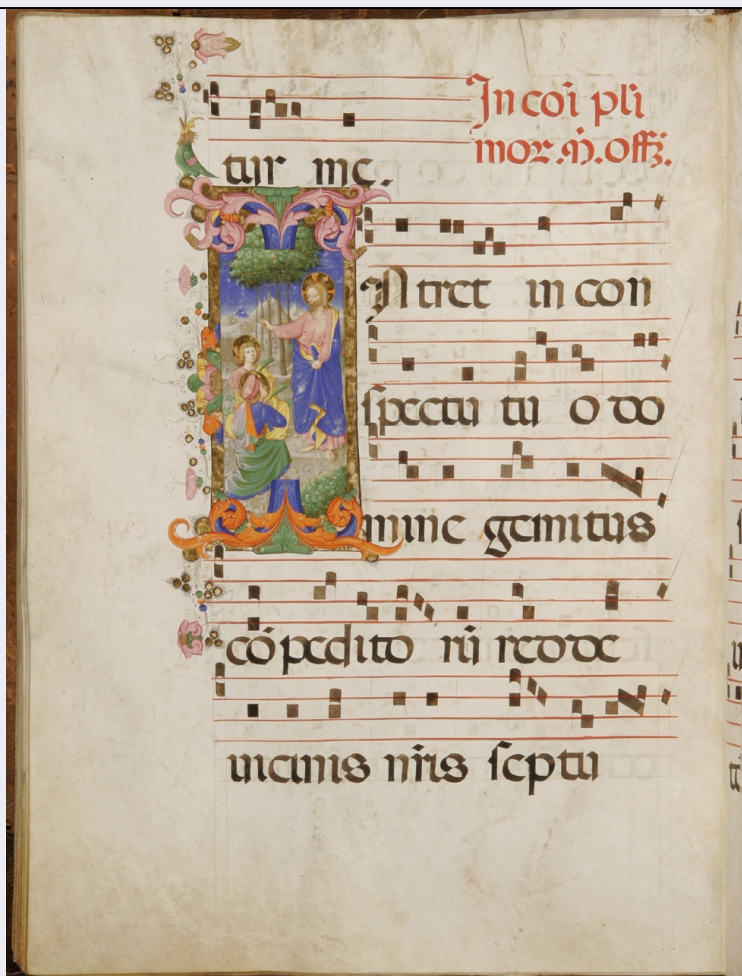 In coī pli
tur me.
moɤ. m̄. offꝫ.
Intret in con
spectu tu o do
mine gemitus
cō pedito rū redde
uicinis nr̄is septu